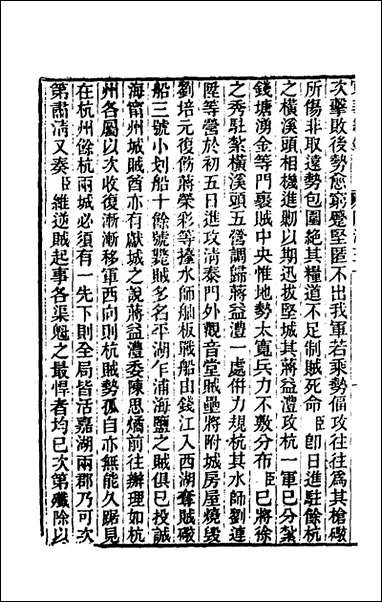 次擊敗後勢愈窮蹙堅匿不出我軍若乘勢偪攻往往爲其槍礮
所傷非取遠勢包圍絕其糧道不足制賊死命臣卽日進駐餘杭
之橫溪頭相機進剿以期迅拔堅城其蔣益澧攻杭一軍已分紮
錢塘湧金等門褁賊中央惟地勢太寬兵力不敷分布臣已將徐
之秀駐紮橫溪頭五營調歸蔣益澧一處倂力規杭其水師劉連
陞等營於初五日進攻清泰門外觀音堂賊壘將附城房屋燒毀
劉培元復飭蔣榮彩等擡水師舢板戰船由錢江入西湖奪賊礮
船三號小划船十餘號斃賊多名平湖乍浦海鹽之賊俱已投誠
海甯州城賊酋亦有獻城之說蔣益澧委陳思燏前往辦理如杭
州各屬以次收復漸漸移軍西向則杭賊勢孤自亦無能久踞見
在杭州餘杭兩城必須有一先下則全局皆活嘉湖兩郡乃可次
第肅清又奏臣維逆賊起事各渠魁之最悍者均已次第殲除以